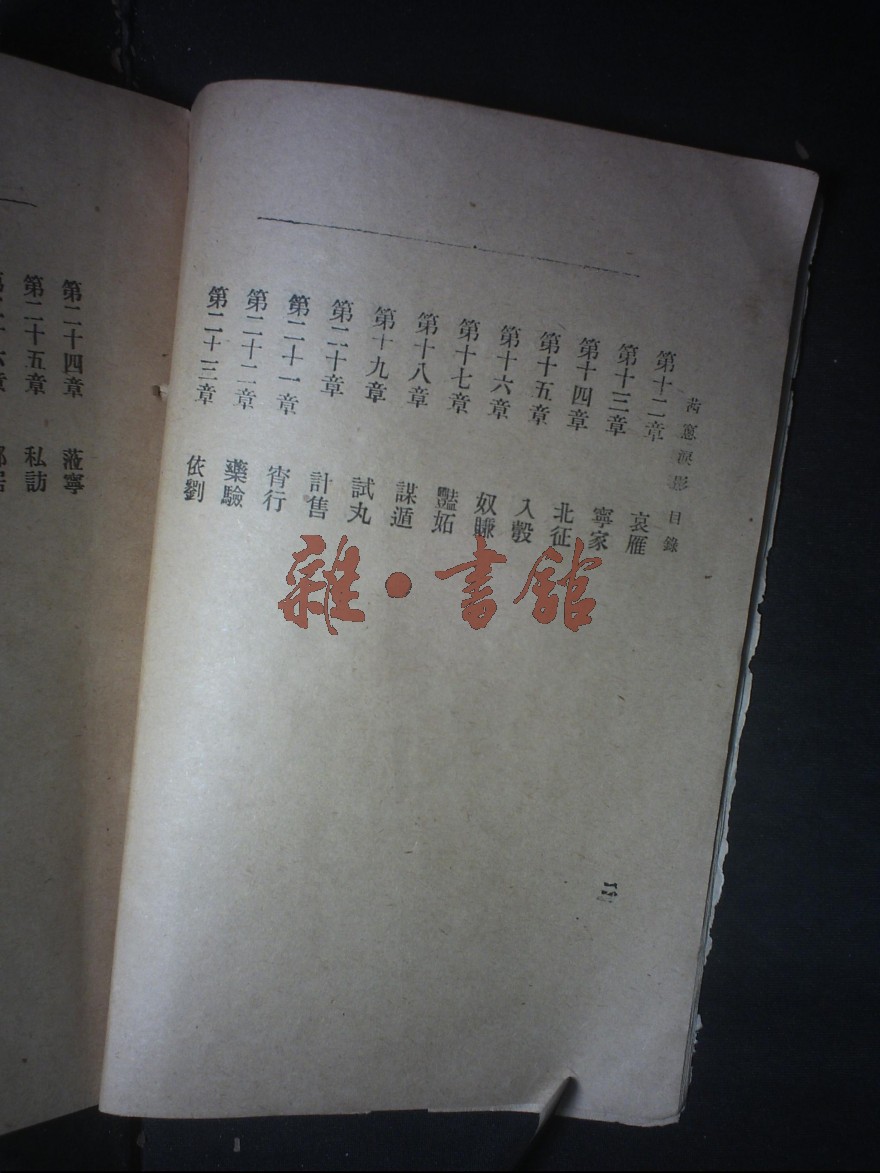 茜窻淚影 目錄
第十二章 哀雁
第十三章 寧家
第十四章 北征
第十五章 入彀
第十六章 奴賺
第十七章 豔妬
第十八章 謀遁
第十九章 試丸
第二十章 計售
第二十一章 宵行
第二十二章 藥驗
第二十三章 依劉
第二十四章 蒞寧
第二十五章 私訪
雜·書館